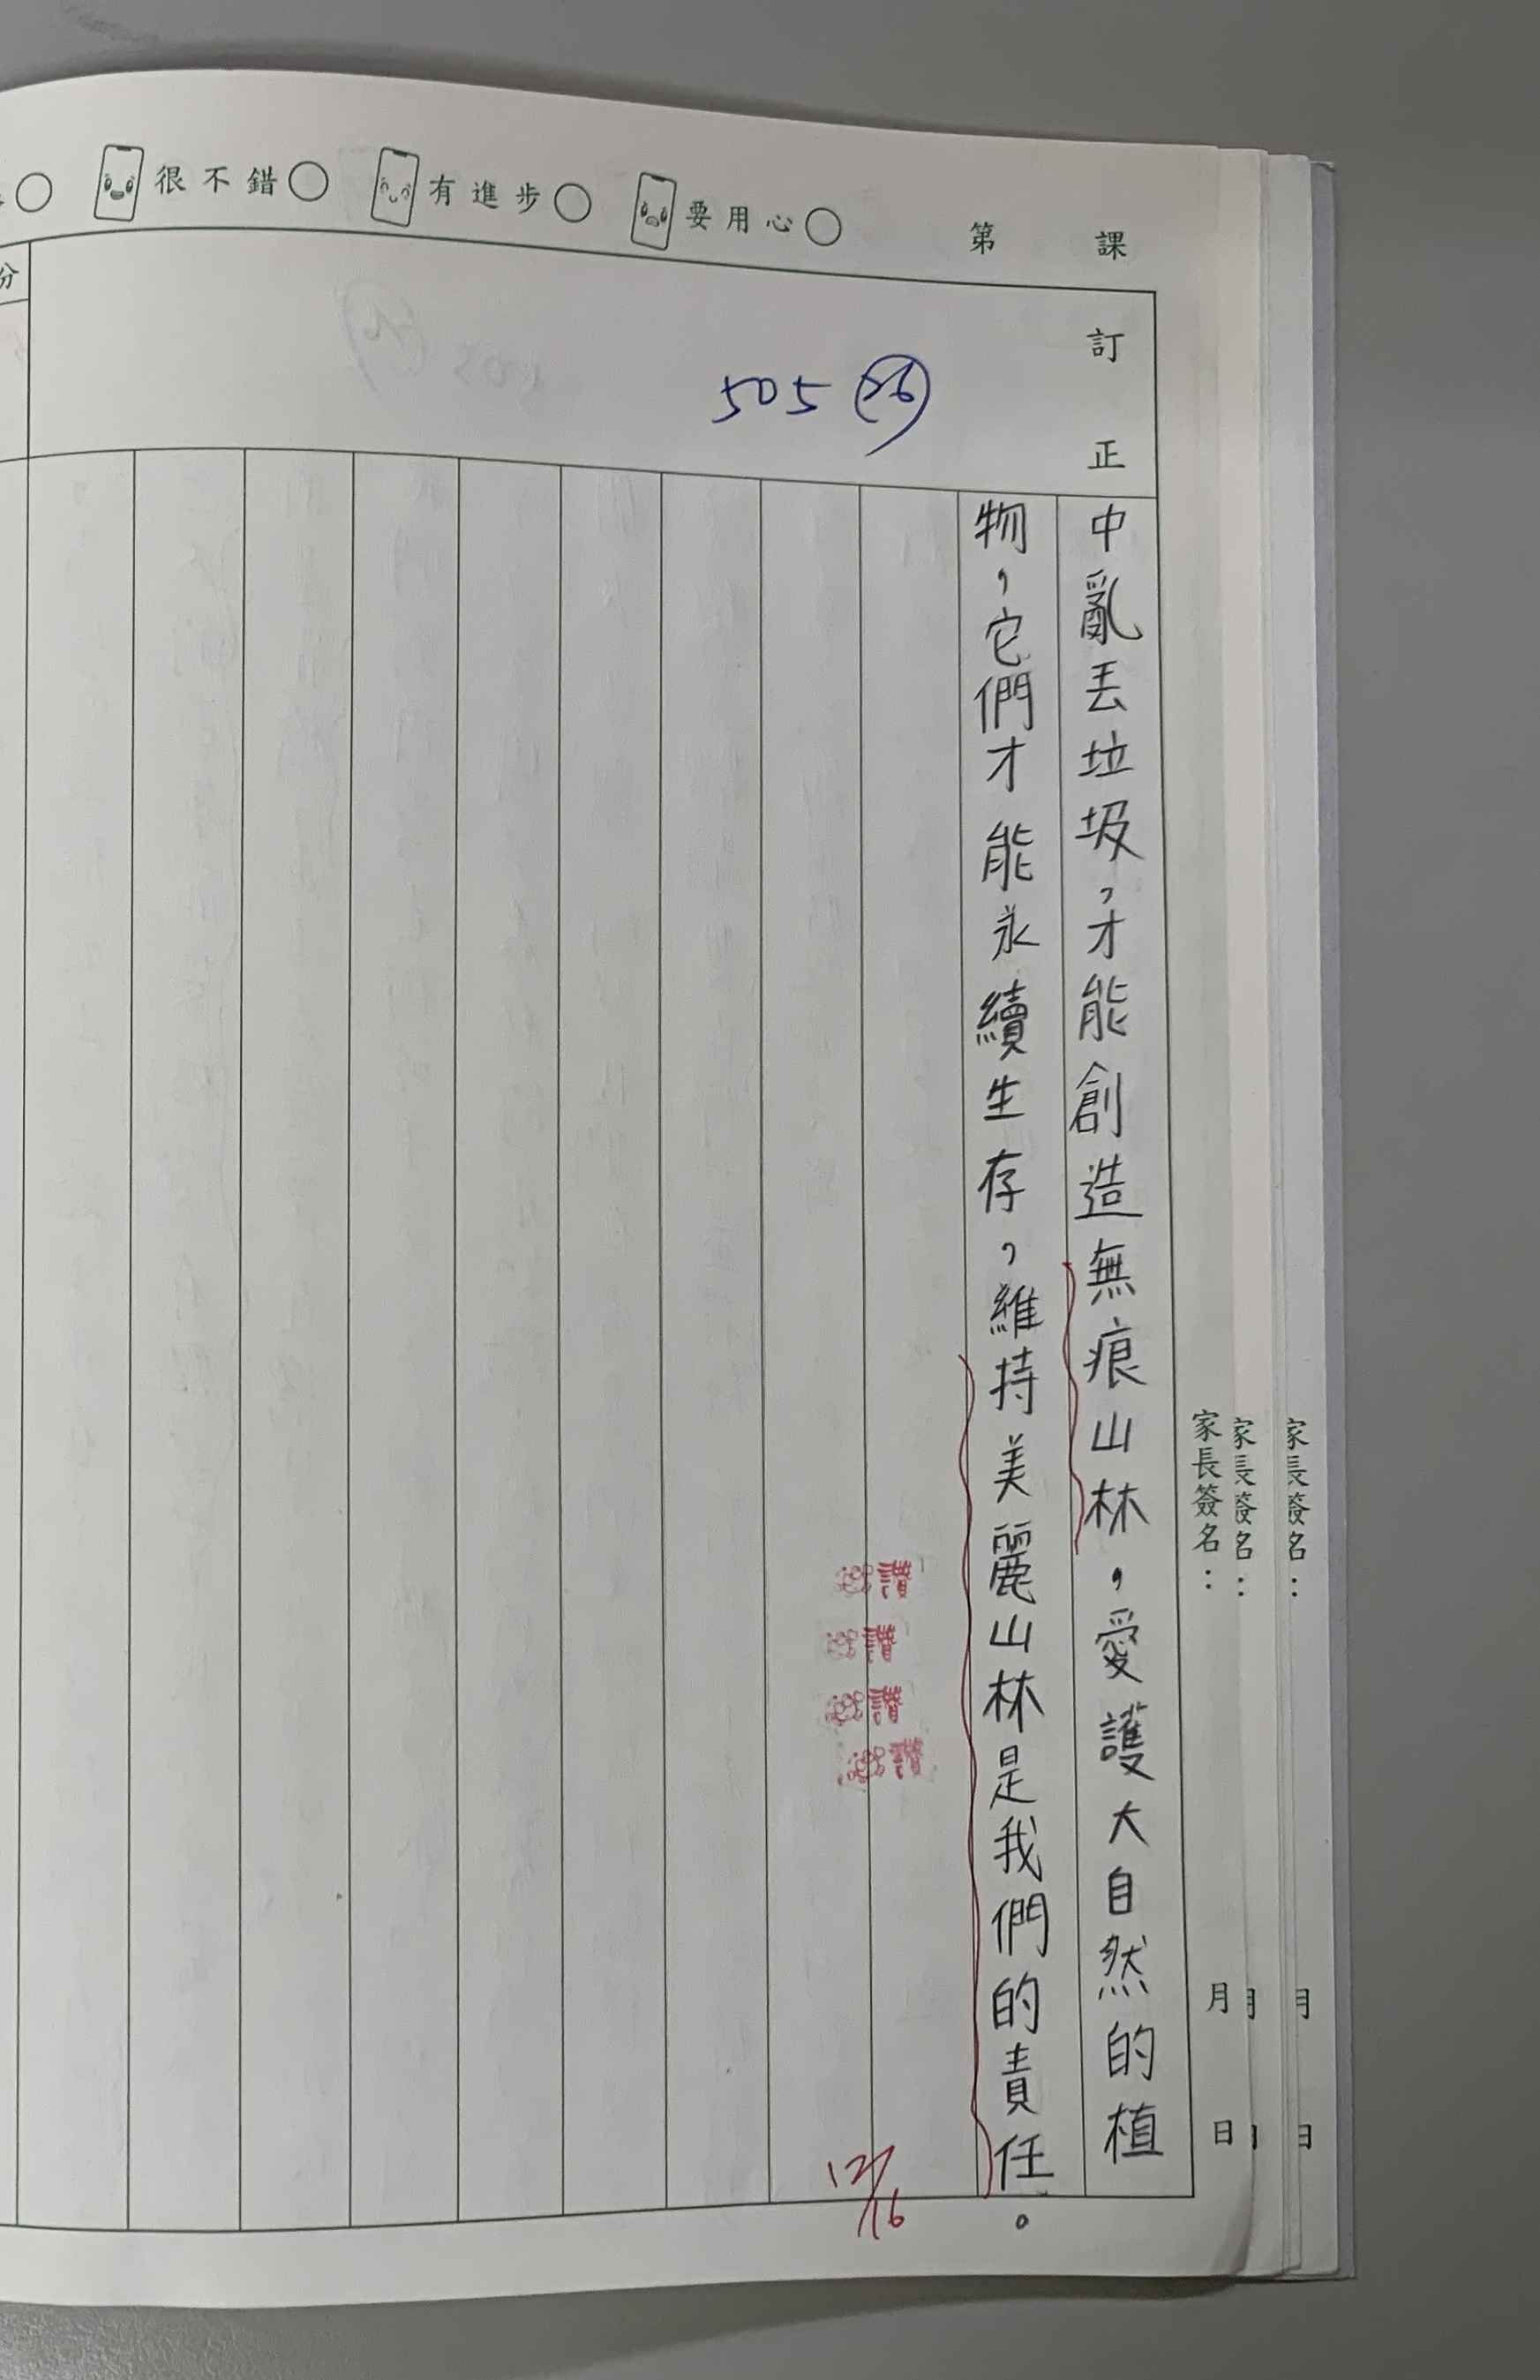 很不錯 有進步 要用心 第 課
分
訂正
505 26
中亂丟垃圾，才能創造無痕山林，愛護大自然的植
物，它們才能永續生存，維持美麗山林是我們的責任。
讚
讚
讚
讚
12/16
家長簽名： 月 日
家長簽名： 月 日
家長簽名： 月 日